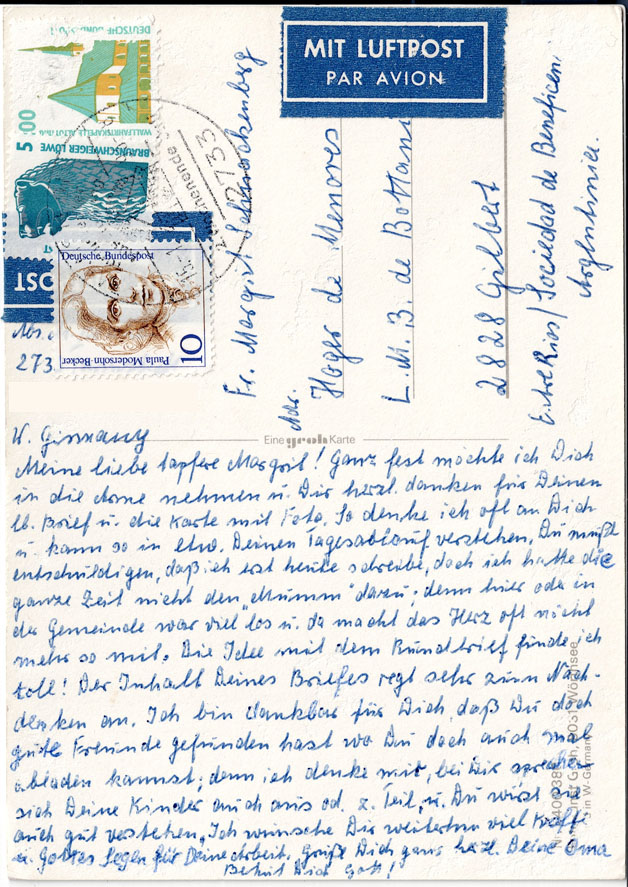 MIT LUFTPOST
PAR AVION
DEUTSCHE BUNDESPOST
WALLFAHRTSKAPELLE
BRAUNSCHWEIGER LÖWE
5 00
2733
POST
Deutsche Bundespost
Paula Modersohn-Becker
10
Abs.
273
W. Girmany
Fr. Margrit
Adr. Hogar de Menores
L. M. B. de Bottani
2828 Gilbert
Entre Rios/ Sociedad de Beneficen.
Arghintinien.
Eine groh Karte
Meine liebe tapfere Margrit! Ganz fest möchte ich Dich
in die Arme nehmen u. Dir herzl. danken für Deinen
lb. Brief u. die Karte mit Foto. So denke ich oft an Dich
u. kann so in etw. Deinen Tagesablauf verstehen. Du mußt
entschuldigen, daß ich erst heute schreibe, doch ich hatte die
ganze Zeit nicht den „Mumm" dazu; denn hier oder in
der Gemeinde war viel los u. da macht das Herz oft nicht
mehr so mit. Die Idee mit dem Rundbrief finde ich
toll! Der Inhalt Deines Briefes regt sehr zum Nach-
denken an. Ich bin dankbar für Dich, daß Du doch
gute Freunde gefunden hast wo Du doch auch mal
abladen kannst; denn ich denke mir, bei Dir sprechen
sich Deine Kinder auch aus od. z. Teil, u. Du wirst sie
auch gut verstehen. Ich wünsche Dir weiterhin viel Kraft
u. Gottes Segen für Deine Arbeit. Grüße Dich ganz herzl. Deine Oma
Behüt Dich Gott!